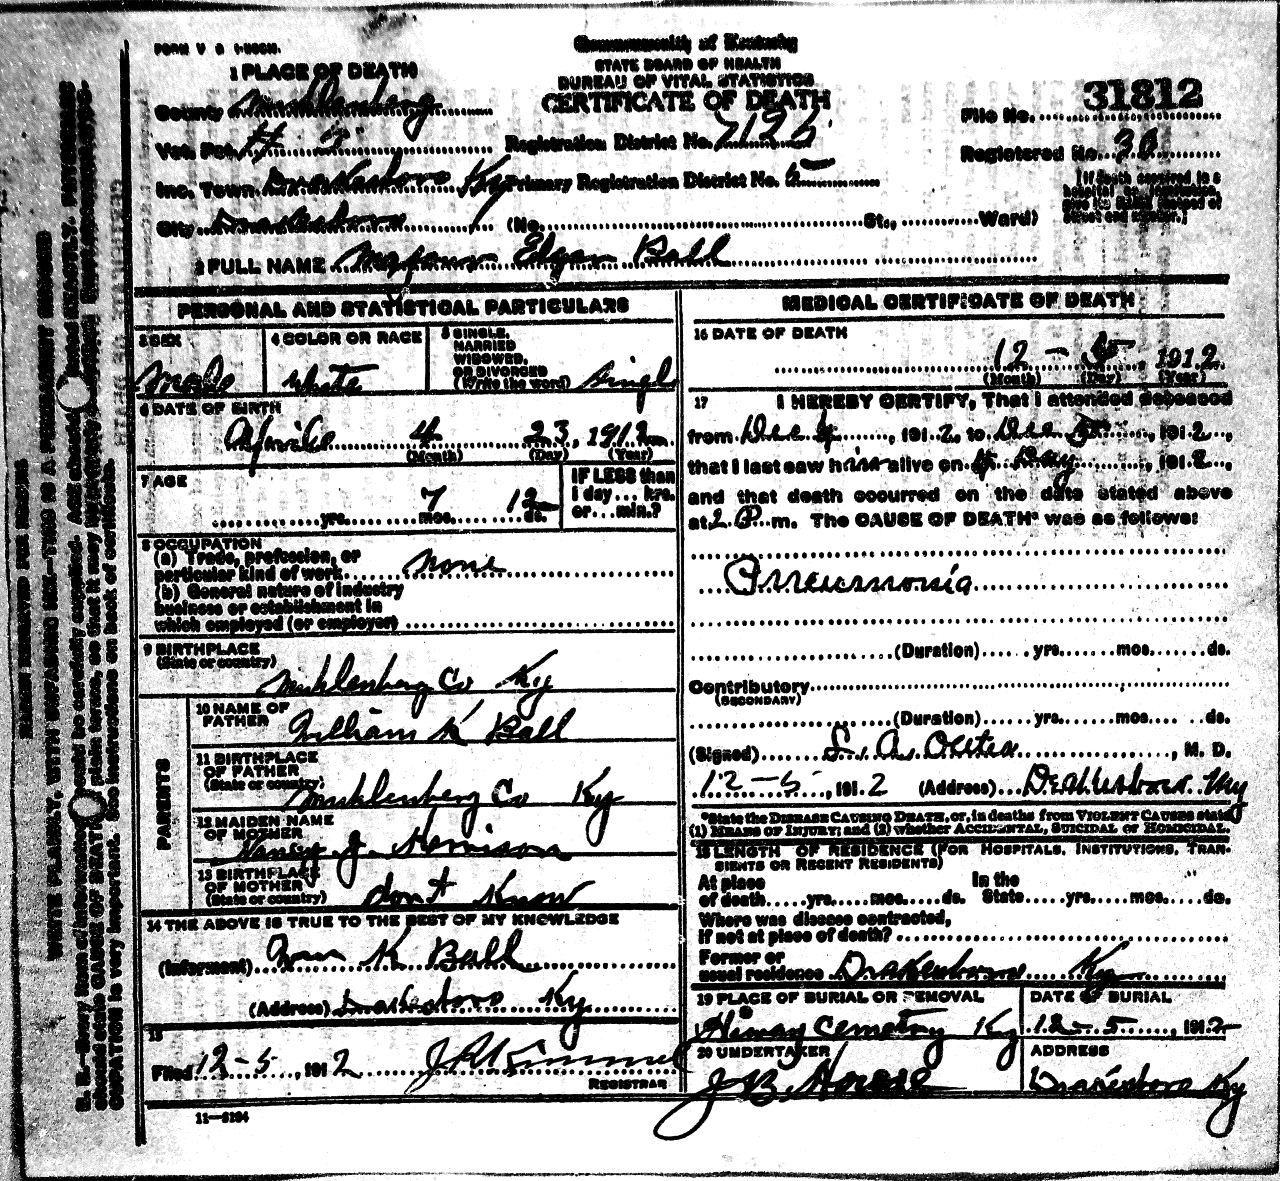 FORM V S 1-50M.
Commonwealth of Kentucky
STATE BOARD OF HEALTH
BUREAU OF VITAL STATISTICS
CERTIFICATE OF DEATH
1 PLACE OF DEATH
County Muhlenberg
Vot. Pct. # 5
Inc. Town Drakesboro Ky
City Drakesboro (No. St., Ward)
Registration District No. 7125
Primary Registration District No. 5
File No. 31812
Registered No. 36
[If death occurred in a
hospital or institution,
give its NAME instead of
street and number.]
2 FULL NAME Edgar Ball
PERSONAL AND STATISTICAL PARTICULARS
3 SEX
Male
4 COLOR OR RACE
White
5 SINGLE,
MARRIED
WIDOWED,
OR DIVORCED
(Write the word) Singl
6 DATE OF BIRTH
Aprile 4 23, 1912
(Month) (Day) (Year)
7 AGE
yrs. 7 mos. 12 ds.
IF LESS than
1 day... hrs.
or...min.?
8 OCCUPATION
(a) Trade, profession, or
particular kind of work none
(b) General nature of industry
business or establishment in
which employed (or employer)
9 BIRTHPLACE
(State or country)
Muhlenberg Co Ky
PARENTS
10 NAME OF
FATHER
William K Ball
11 BIRTHPLACE
OF FATHER
(State or country)
Muhlenberg Co Ky
12 MAIDEN NAME
OF MOTHER
Nancy J. Harrison
13 BIRTHPLACE
OF MOTHER
(State or country)
dont Know
14 THE ABOVE IS TRUE TO THE BEST OF MY KNOWLEDGE
(Informant) Wm K Ball
(Address) Drakesboro Ky
15
Filed 12-5, 1912 J. R. Kimmel
REGISTRAR
11-5184
MEDICAL CERTIFICATE OF DEATH
16 DATE OF DEATH
12 - 5, 1912
(Month) (Day) (Year)
17 I HEREBY CERTIFY, That I attended deceased
from Dec 4, 1912, to Dec 5, 1912,
that I last saw him alive on Day, 1912,
and that death occurred on the date stated above
at 2 P. m. The CAUSE OF DEATH* was as follows:
Pneumonia
(Duration) yrs. mos. ds.
Contributory
(SECONDARY)
(Duration) yrs. mos. ds.
(Signed) M. D.
12-5, 1912 (Address) Drakesboro Ky
*State the DISEASE CAUSING DEATH, or, in deaths from VIOLENT CAUSES state
(1) MEANS OF INJURY; and (2) whether ACCIDENTAL, SUICIDAL or HOMICIDAL.
18 LENGTH OF RESIDENCE (FOR HOSPITALS, INSTITUTIONS, TRAN-
SIENTS OR RECENT RESIDENTS)
At place In the
of death yrs. mos. ds. State yrs. mos. ds.
Where was disease contracted,
if not at place of death?
Former or
usual residence Drakesboro Ky
19 PLACE OF BURIAL OR REMOVAL
Cemetry Ky
DATE OF BURIAL
12-5, 1912
20 UNDERTAKER
J B House
ADDRESS
Drakesboro Ky
MARGIN RESERVED FOR BINDING
WRITE PLAINLY, WITH UNFADING INK—THIS IS A PERMANENT RECORD
N. B.—Every item of information should be carefully supplied. AGE should be stated EXACTLY. PHYSICIANS
should state CAUSE OF DEATH in plain terms, so that it may be properly classified. Exact statement of OC-
CUPATION is very important. See instructions on back of certificate.